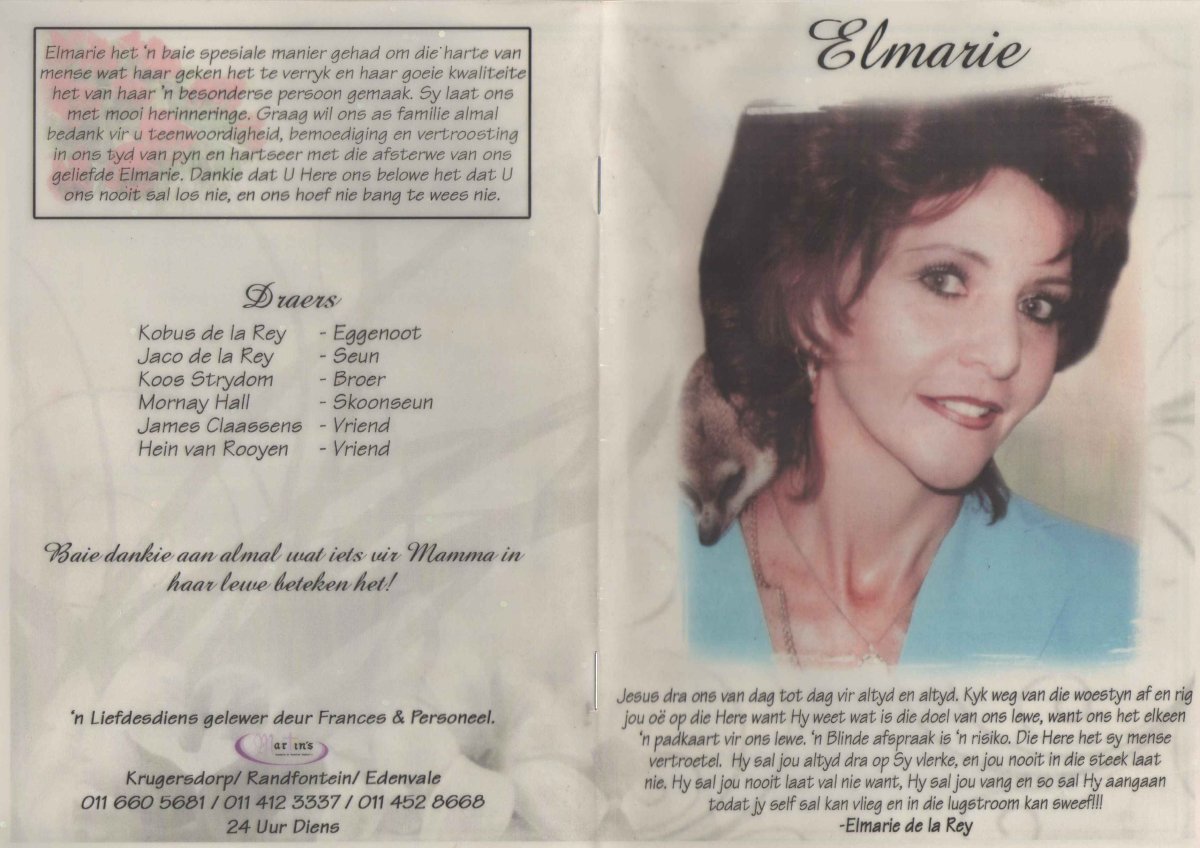 Elmarie het 'n baie spesiale manier gehad om die harte van
mense wat haar geken het te verryk en haar goeie kwaliteite
het van haar 'n besonderse persoon gemaak. Sy laat ons
met mooi herinneringe. Graag wil ons as familie almal
bedank vir u teenwoordigheid, bemoediging en vertroosting
in ons tyd van pyn en hartseer met die afsterwe van ons
geliefde Elmarie. Dankie dat U Here ons belowe het dat U
ons nooit sal los nie, en ons hoef nie bang te wees nie.
Draers
Kobus de la Rey - Eggenoot
Jaco de la Rey - Seun
Koos Strydom - Broer
Mornay Hall - Skoonseun
James Claassens - Vriend
Hein van Rooyen - Vriend
Baie dankie aan almal wat iets vir Mamma in
haar lewe beteken het!
'n Liefdesdiens gelewer deur Frances & Personeel.
Martin's
Krugersdorp/ Randfontein/ Edenvale
011 660 5681 / 011 412 3337 / 011 452 8668
24 Uur Diens
Elmarie
Jesus dra ons van dag tot dag vir altyd en altyd. Kyk weg van die woestyn af en rig
jou oë op die Here want Hy weet wat is die doel van ons lewe, want ons het elkeen
'n padkaart vir ons lewe. 'n Blinde afspraak is 'n risiko. Die Here het sy mense
vertroetel. Hy sal jou altyd dra op Sy vlerke, en jou nooit in die steek laat
nie. Hy sal jou nooit laat val nie want, Hy sal jou vang en so sal Hy aangaan
todat jy self sal kan vlieg en in die lugstroom kan sweef!!!
-Elmarie de la Rey